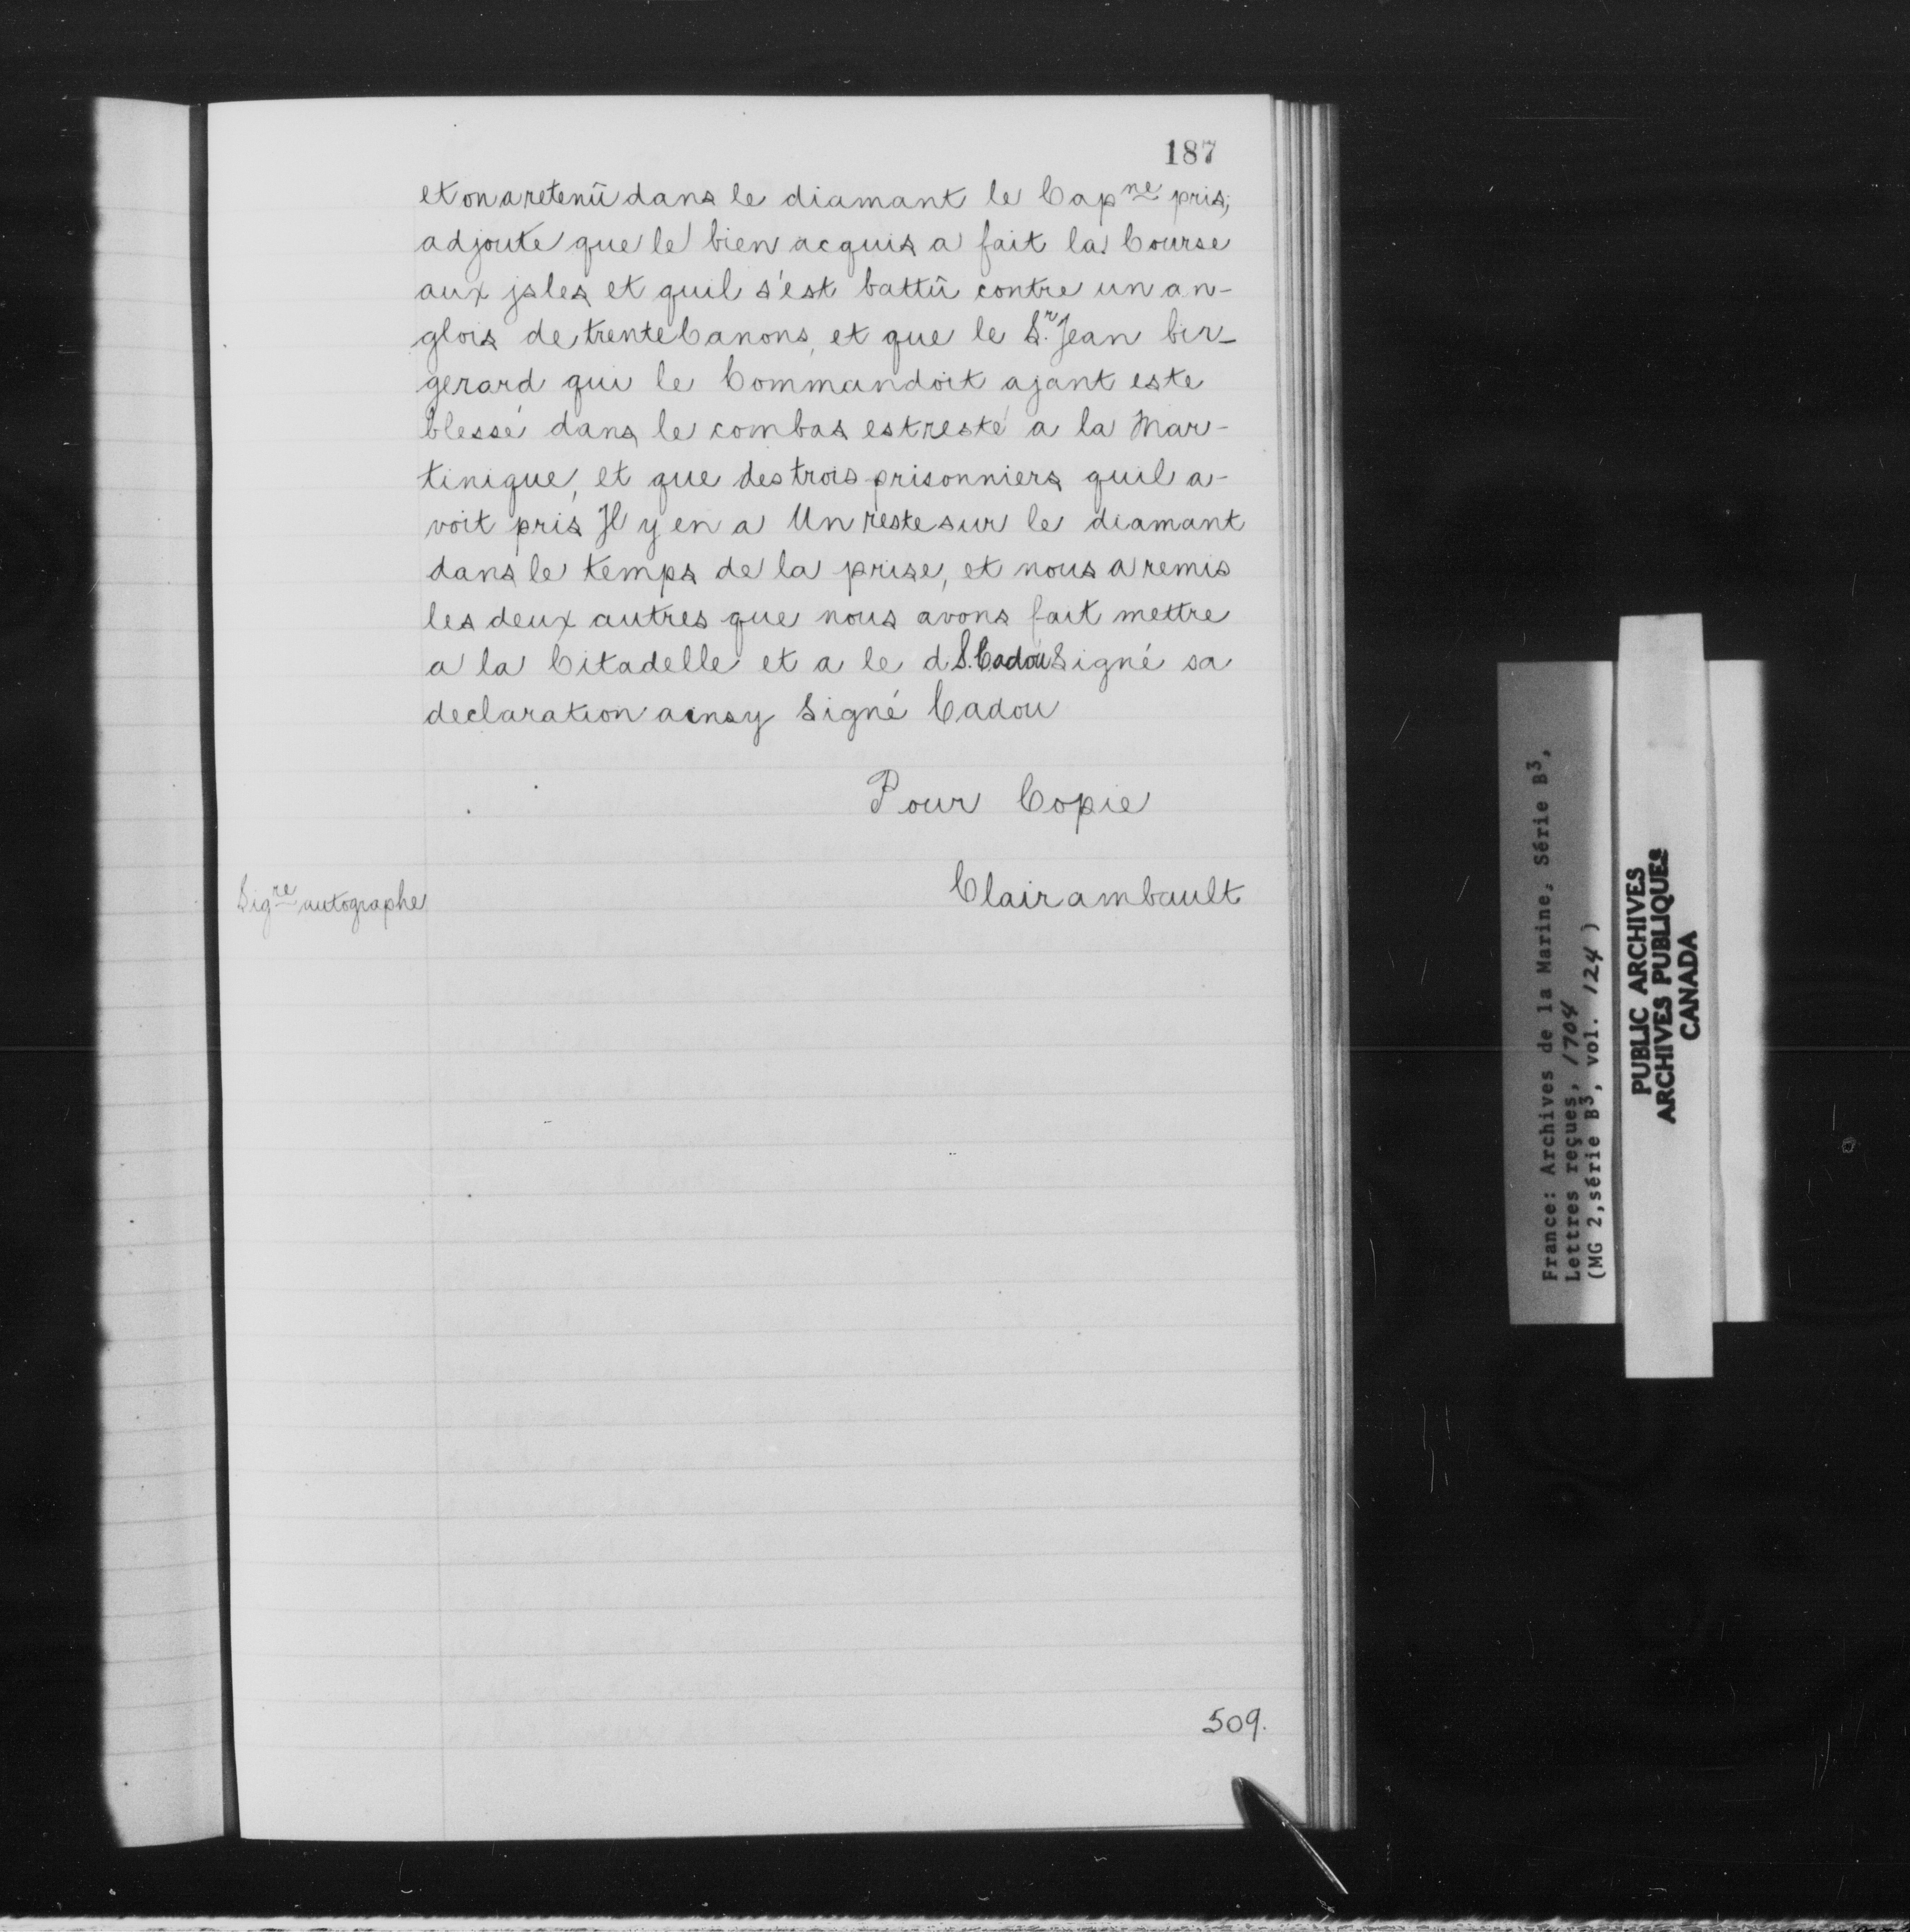 187
et on a retenû dans le diamant le Cap.ne pris;
adjoute que le bien acquis a fait la Course
aux jsles et quil s'est battû contre un an-
glois de trente Canons, et que le S.r Jean bir-
gerard qui le Commandoit ajant este
blessé dans le combas est resté a la Mar-
tinique, et que des trois prisonniers quil a-
voit pris Jl y en a Un reste sur le diamant
dans le temps de la prise, et nous a remis
les deux autres que nous avons fait mettre
a la Citadelle et a le d S. Cadou Signé sa
declaration ainsy Signé Cadou
Pour Copie
Sigre autographe
Clairambault
509.
France: Archives de la Marine, Série B3,
Lettres reçues, 1704
(MG 2, série B3, vol. 124)
PUBLIC ARCHIVES
ARCHIVES PUBLIQUES
CANADA